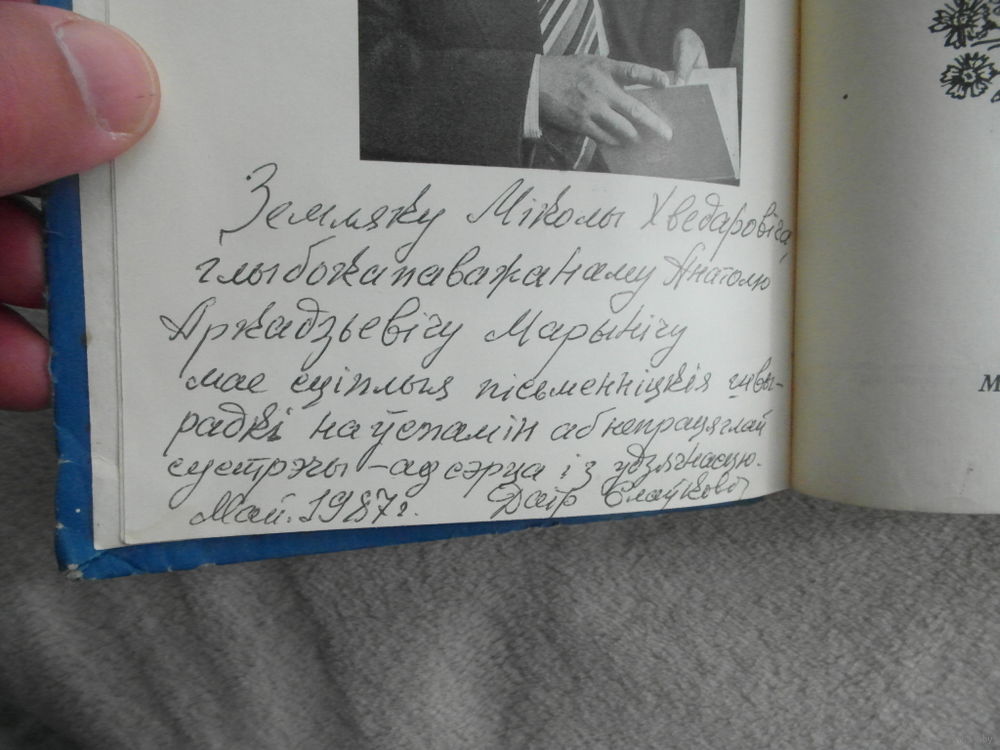 Земляку Міколы Хведаровіча,
глыбокапаважанаму Анатолю
Аркадзьевічу Марынічу
мае сціплыя пісьменніцкія шво-
радкі на ўспамін аб непрацяглай
сустрэчы – ад сэрца і з удзячнасцю.
Май. 1987 г. Даір Слаўковіч
М